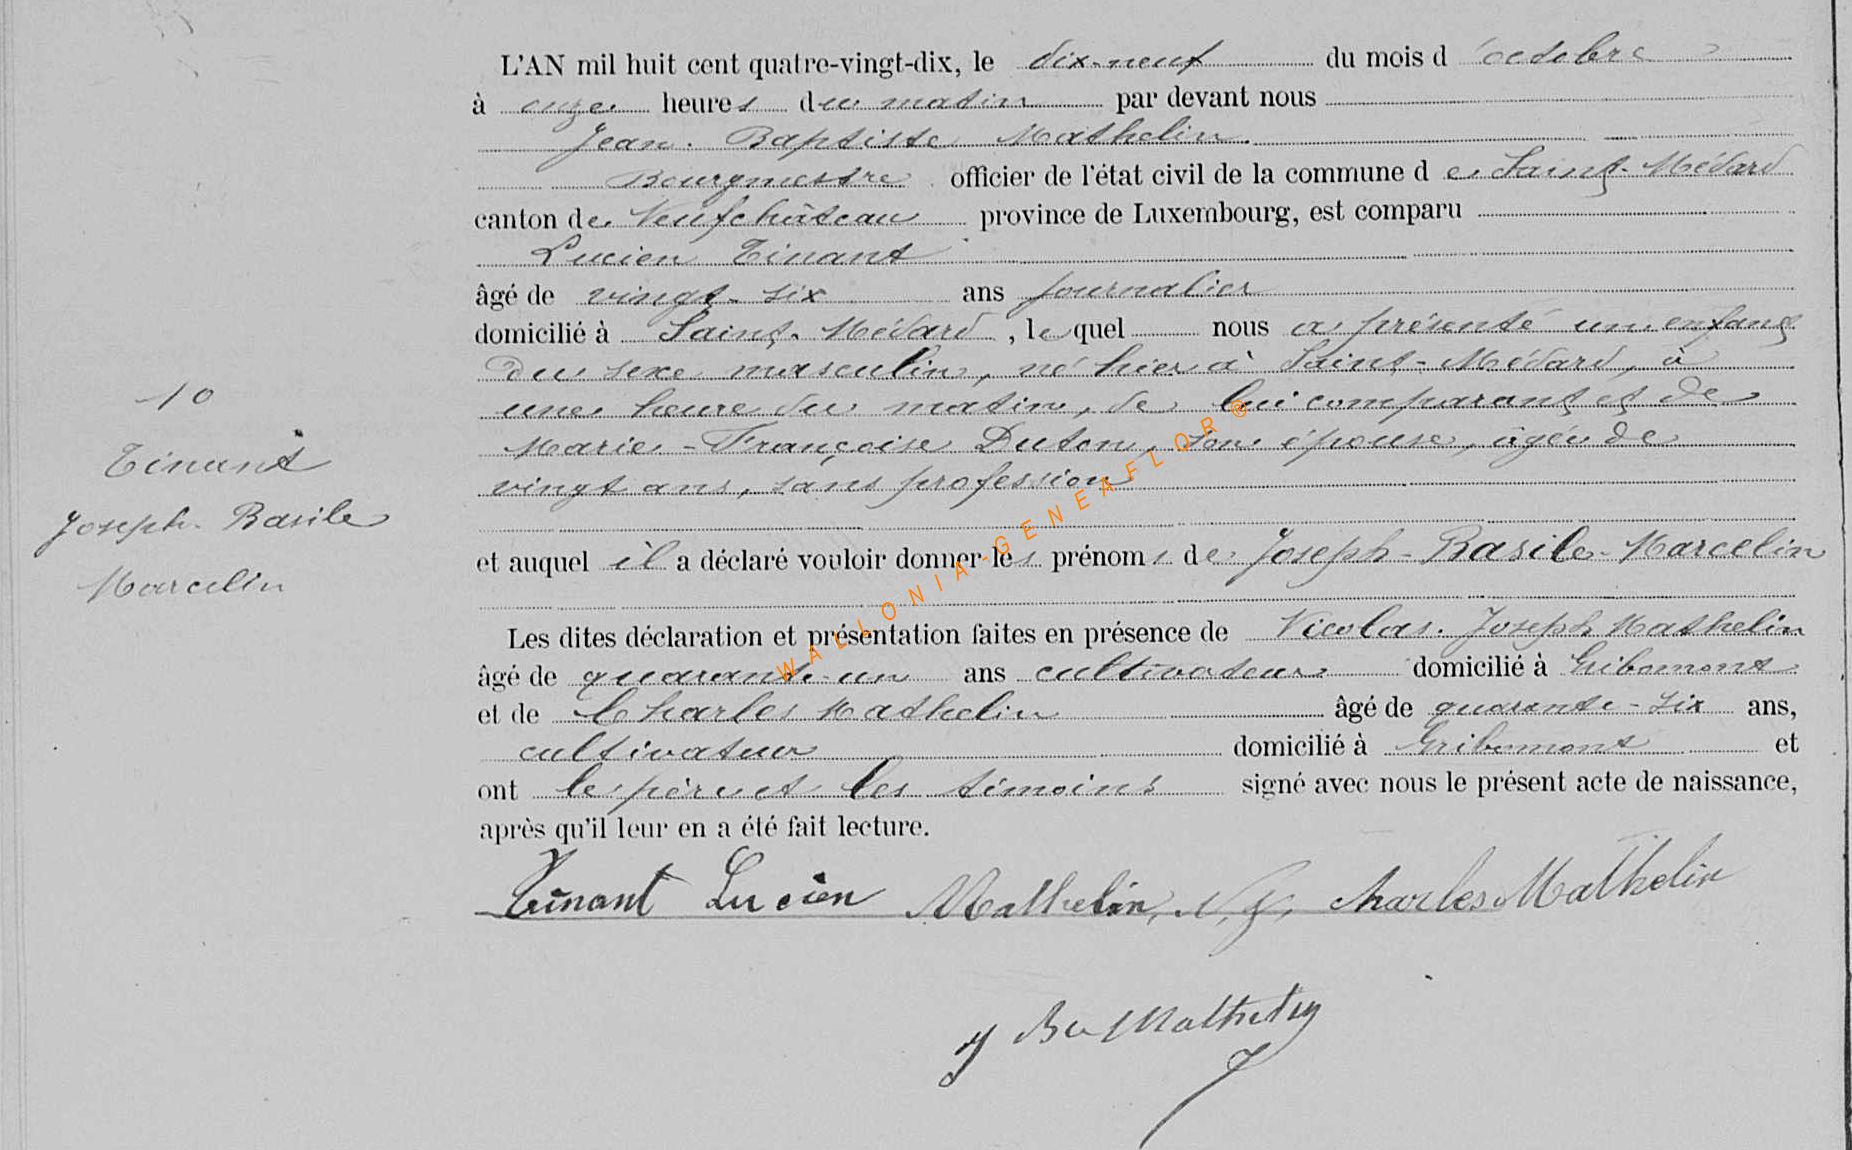 L'AN mil huit cent quatre-vingt-dix, le dix-neuf du mois d'octobre
à onze heures du matin par devant nous
Jean-Baptiste Mathelin
Bourgmestre officier de l'état civil de la commune de Saint-Médard
canton de Neufchâteau province de Luxembourg, est comparu
Lucien Tinant
âgé de vingt-six ans journalier
domicilié à Saint-Médard, lequel nous a présenté un enfant
du sexe masculin, né hier à Saint-Médard, à
une heure du matin, de lui comparant et de
Marie-Françoise Duton, son épouse, âgée de
vingt ans, sans profession
et auquel il a déclaré vouloir donner les prénoms de Joseph-Basile-Marcelin
Les dites déclaration et présentation faites en présence de Nicolas-Joseph Mathelin
âgé de quarante-un ans cultivateur domicilié à Gribomont
et de Charles Mathelin âgé de quarante-six ans,
cultivateur domicilié à Gribomont et
ont le père et les témoins signé avec nous le présent acte de naissance,
après qu'il leur en a été fait lecture.
Tinant Lucien Mathelin, N, J, Charles Mathelin
J Bte Mathelin
10
Tinant
Joseph-Basile
Marcelin
WALLONIA-GENEAFLOR®